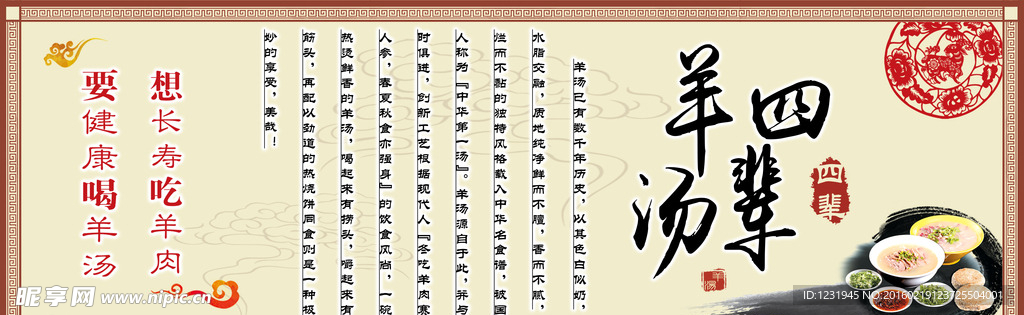 四辈
羊汤
四辈
羊汤
羊汤已有数千年历史，以其色白似奶，
水脂交融，质地纯净鲜而不膻，香而不腻，
烂而不黏的独特风格载入中华名食谱，被国
人称为『中华第一汤』。羊汤源自于此，并与
时俱进，创新工艺根据现代人『冬吃羊肉赛
人参，春夏秋食亦强身』的饮食风尚，一碗
热烫鲜香的羊汤，喝起来有捞头，嚼起来有
筋头，再配以劲道的热烧饼同食则是一种极
妙的享受，美哉！
想长寿吃羊肉
要健康喝羊汤
昵享网 www.nipic.cn
ID:1231945 NO:20160219123725504001